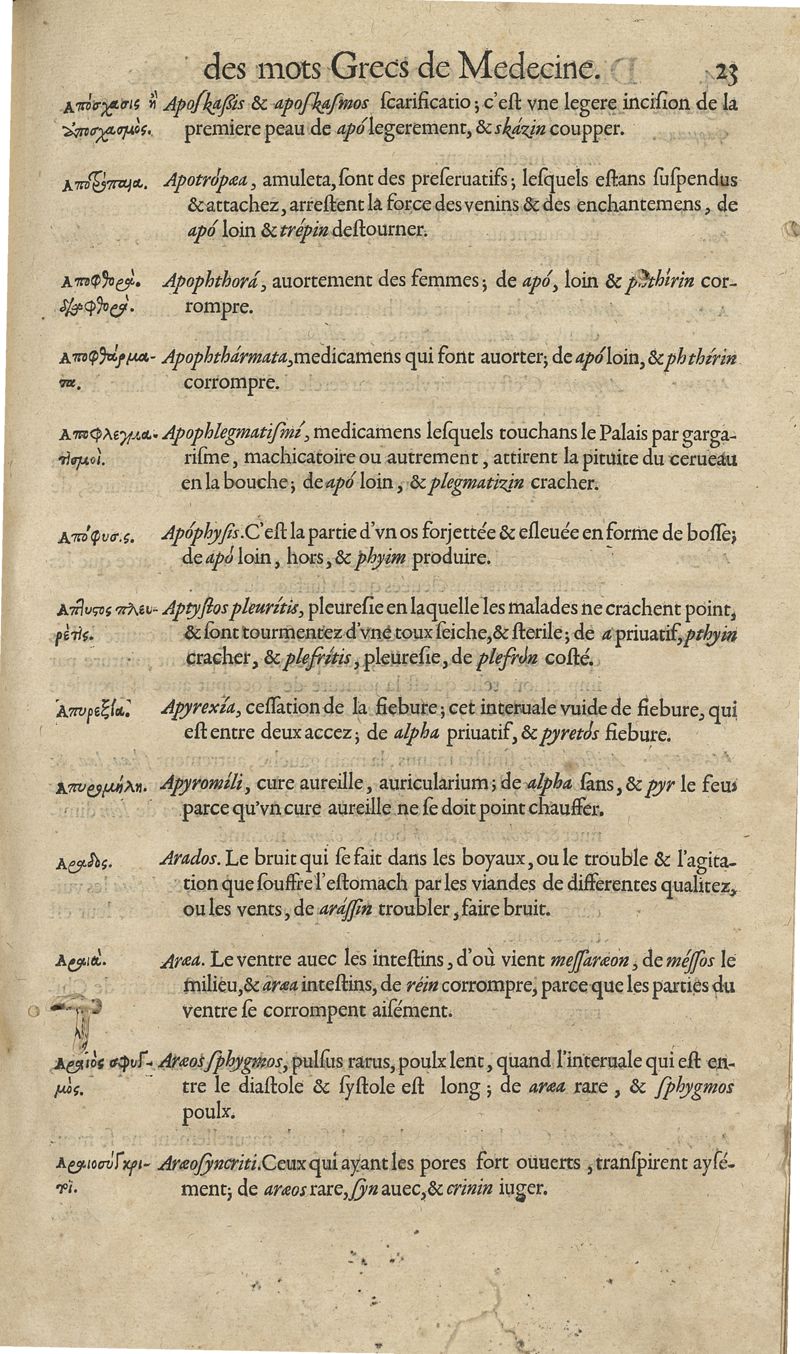 des mots Grecs de Medecine. 23
Ἀπόσχασις ἢ Apoſkaſsis & apoſkaſmos ſcarificatio; c'eſt vne legere inciſion de la
ἀποσχασμὸς. premiere peau de apó legerement, & skázin coupper.
Ἀποτρόπαια. Apotrópæa, amuleta, ſont des preſeruatifs; leſquels eſtans ſuſpendus
& attachez, arreſtent la force des venins & des enchantemens, de
apó loin & trépin deſtourner.
Ἀποφθορά. Apophthorá, auortement des femmes; de apó, loin & phthírin cor-
διαφθορά. rompre.
Ἀποφθάρμα- Apophthármata, medicamens qui font auorter; de apó loin, & phthírin
τα. corrompre.
Ἀποφλεγμα- Apophlegmatiſmí, medicamens leſquels touchans le Palais par garga-
τισμοί. riſme, machicatoire ou autrement, attirent la pituite du cerueau
en la bouche; de apó loin, & plegmatizin cracher.
Ἀπόφυσις. Apóphyſis. C'eſt la partie d'vn os forjettée & eſleuée en forme de boſſe;
de apó loin, hors, & phyim produire.
Ἄπτυστος πλευ- Aptyſtos pleurítis, pleureſie en laquelle les malades ne crachent point,
ρέτις. & ſont tourmentez d'vne toux ſeiche, & ſterile; de a priuatif, pthyin
cracher, & plefrítis, pleureſie, de plefrón coſté.
Ἀπυρεξία. Apyrexía, ceſſation de la fiebure; cet interuale vuide de fiebure, qui
eſt entre deux accez; de alpha priuatif, & pyretós fiebure.
Ἀπυρομήλη. Apyromíli, cure aureille, auricularium; de alpha ſans, & pyr le feu;
parce qu'vn cure aureille ne ſe doit point chauffer.
Ἄραδος. Arados. Le bruit qui ſe fait dans les boyaux, ou le trouble & l'agita-
tion que ſouffre l'eſtomach par les viandes de differentes qualitez,
ou les vents, de aráſſin troubler, faire bruit.
Ἀραιὰ. Aræa. Le ventre auec les inteſtins, d'où vient meſſaræon, de méſſos le
milieu, & aræa inteſtins, de réin corrompre, parce que les parties du
ventre ſe corrompent aiſément.
Ἀραιὸς σφυγ- Aræos ſphygmos, pulſus rarus, poulx lent, quand l'interuale qui eſt en-
μὸς. tre le diaſtole & ſyſtole eſt long; de aræa rare, & ſphygmos
poulx.
Ἀραιοσύγκρι- Aræoſyncriti. Ceux qui ayant les pores fort ouuerts, tranſpirent ayſé-
τοι. ment; de aræos rare, ſyn auec, & crinin iuger.